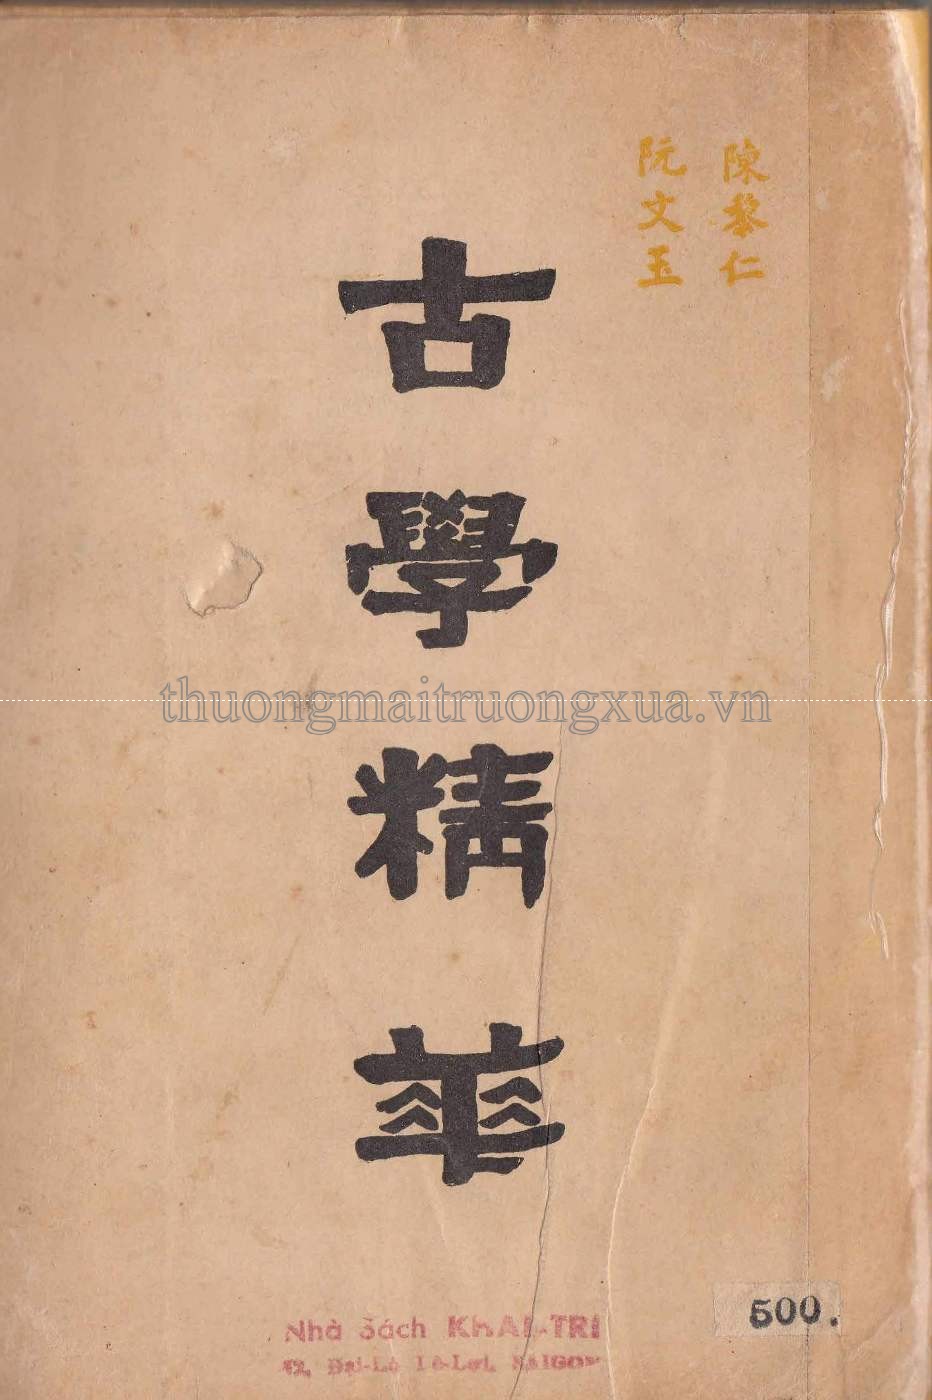 陳黎仁
阮文玉
古學精華
thuongmaitruongxua.vn
500.
Nhà Sách KHAI-TRI
62, Đại-Lộ Lê-Lợi, SAIGON